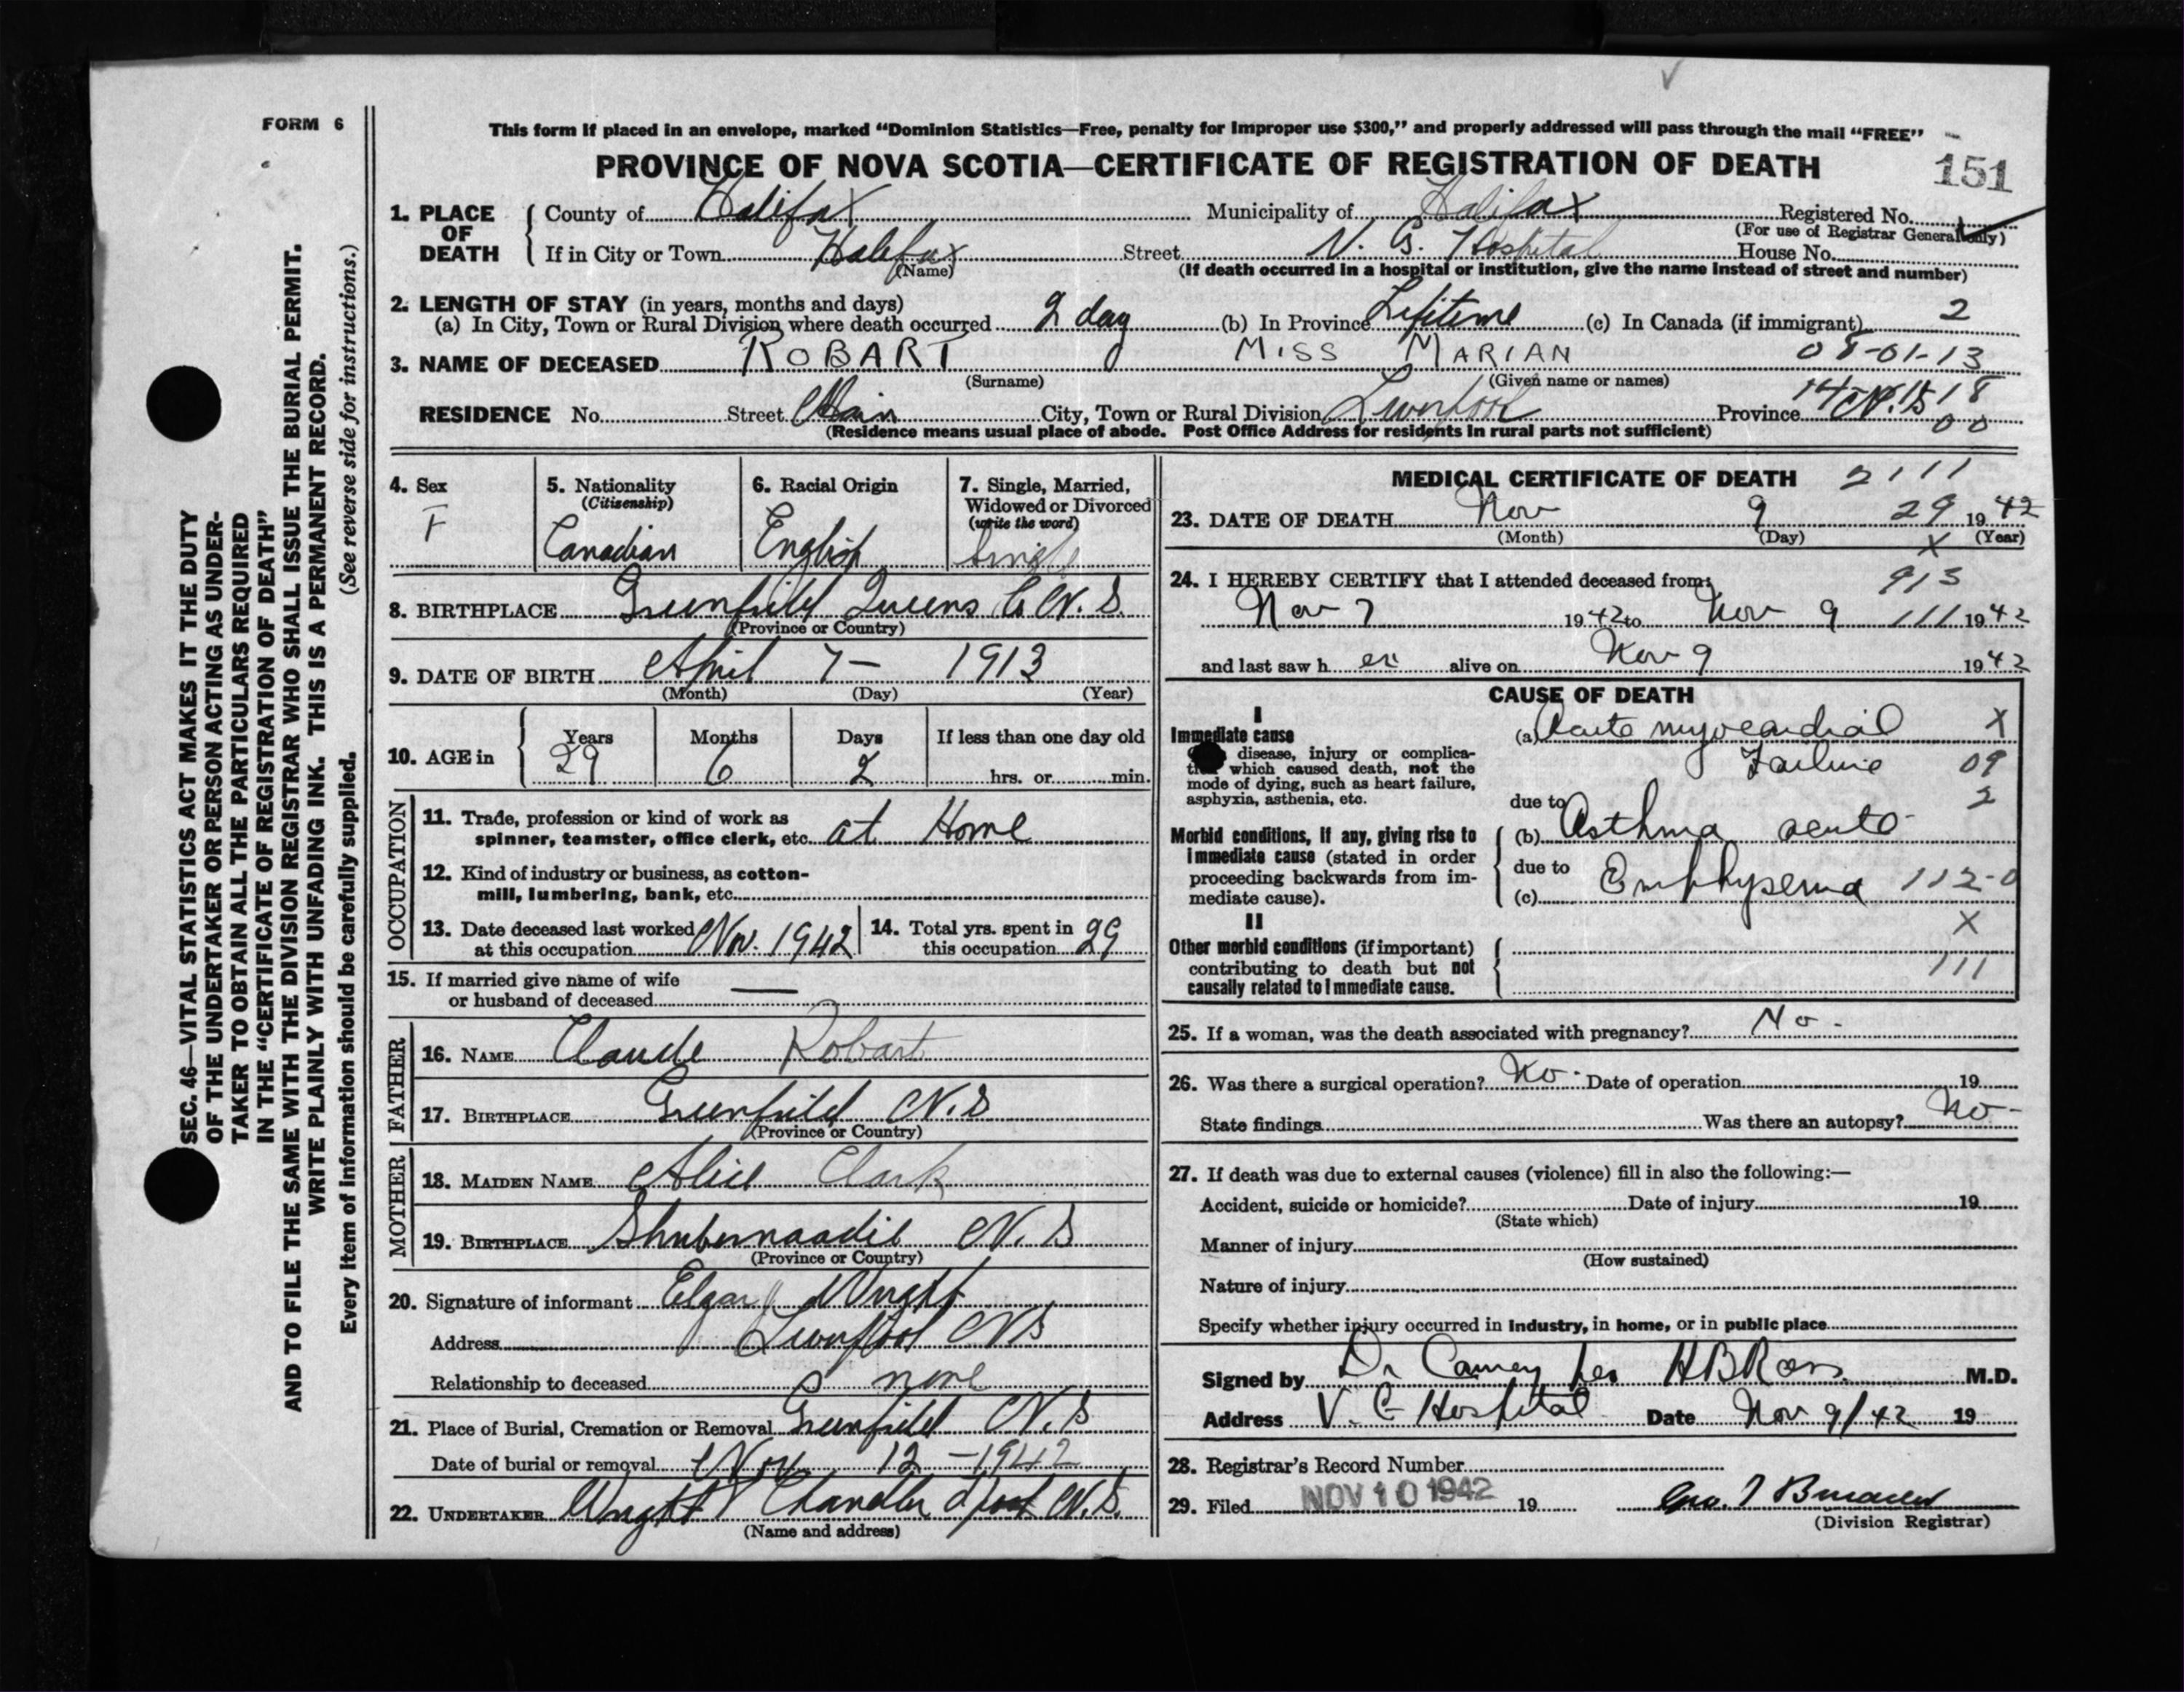 FORM 6
This form if placed in an envelope, marked "Dominion Statistics—Free, penalty for improper use $300," and properly addressed will pass through the mail "FREE"
PROVINCE OF NOVA SCOTIA—CERTIFICATE OF REGISTRATION OF DEATH
151
1. PLACE OF DEATH
County of Halifax Municipality of Halifax Registered No.
(For use of Registrar General only)
If in City or Town Halifax Street V. G. Hospital House No.
(Name) (If death occurred in a hospital or institution, give the name instead of street and number)
2. LENGTH OF STAY (in years, months and days)
(a) In City, Town or Rural Division where death occurred 2 day (b) In Province Lifetime (c) In Canada (if immigrant) 2
3. NAME OF DECEASED ROBART MISS MARIAN 08-01-13
(Surname) (Given name or names)
RESIDENCE No. Street Main City, Town or Rural Division Liverpool Province N.S
00
(Residence means usual place of abode. Post Office Address for residents in rural parts not sufficient)
4. Sex
F
5. Nationality
(Citizenship)
Canadian
6. Racial Origin
English
7. Single, Married, Widowed or Divorced
(write the word)
Single
8. BIRTHPLACE Greenfield Queens Co N.S.
(Province or Country)
9. DATE OF BIRTH April 7— 1913
(Month) (Day) (Year)
10. AGE in
Years Months Days If less than one day old
29 6 2 hrs. or min.
OCCUPATION
11. Trade, profession or kind of work as
spinner, teamster, office clerk, etc. at Home
12. Kind of industry or business, as cotton-
mill, lumbering, bank, etc.
13. Date deceased last worked
at this occupation Nov. 1942
14. Total yrs. spent in
this occupation 29
15. If married give name of wife
or husband of deceased —
FATHER
16. NAME Claude Robart
17. BIRTHPLACE Greenfield N.S
(Province or Country)
MOTHER
18. MAIDEN NAME Alice Clark
19. BIRTHPLACE N.S
(Province or Country)
20. Signature of informant Elgar Wright
Address Liverpool NS
Relationship to deceased none
21. Place of Burial, Cremation or Removal Greenfield N.S
Date of burial or removal Nov. 12 —1942
22. UNDERTAKER Wright Chandler N.S.
(Name and address)
MEDICAL CERTIFICATE OF DEATH 2111
23. DATE OF DEATH Nov 9 29 1942
(Month) (Day) (Year)
X
24. I HEREBY CERTIFY that I attended deceased from:
913
Nov 7 1942 to Nov 9 111 1942
and last saw h er alive on Nov 9 1942
CAUSE OF DEATH
I
Immediate cause
disease, injury or complica-
tion which caused death, not the
mode of dying, such as heart failure,
asphyxia, asthenia, etc.
(a) Acute myocardial X
Failure 09
2
due to
Morbid conditions, if any, giving rise to
immediate cause (stated in order
proceeding backwards from im-
mediate cause).
(b) Asthma acute
due to
(c) Emphysema 112-0
X
II
Other morbid conditions (if important)
contributing to death but not
causally related to immediate cause.
111
25. If a woman, was the death associated with pregnancy? No.
26. Was there a surgical operation? No. Date of operation 19
State findings Was there an autopsy? No-
27. If death was due to external causes (violence) fill in also the following:—
Accident, suicide or homicide? Date of injury 19
(State which)
Manner of injury
(How sustained)
Nature of injury
Specify whether injury occurred in industry, in home, or in public place
Signed by Dr Carney per HB Ross M.D.
Address V. G Hospital Date Nov 9/42 19
28. Registrar's Record Number
29. Filed NOV 10 1942 19 Geo.
(Division Registrar)
SEC. 46—VITAL STATISTICS ACT MAKES IT THE DUTY
OF THE UNDERTAKER OR PERSON ACTING AS UNDER-
TAKER TO OBTAIN ALL THE PARTICULARS REQUIRED
IN THE "CERTIFICATE OF REGISTRATION OF DEATH"
AND TO FILE THE SAME WITH THE DIVISION REGISTRAR WHO SHALL ISSUE THE BURIAL PERMIT.
WRITE PLAINLY WITH UNFADING INK. THIS IS A PERMANENT RECORD.
Every item of information should be carefully supplied. (See reverse side for instructions.)